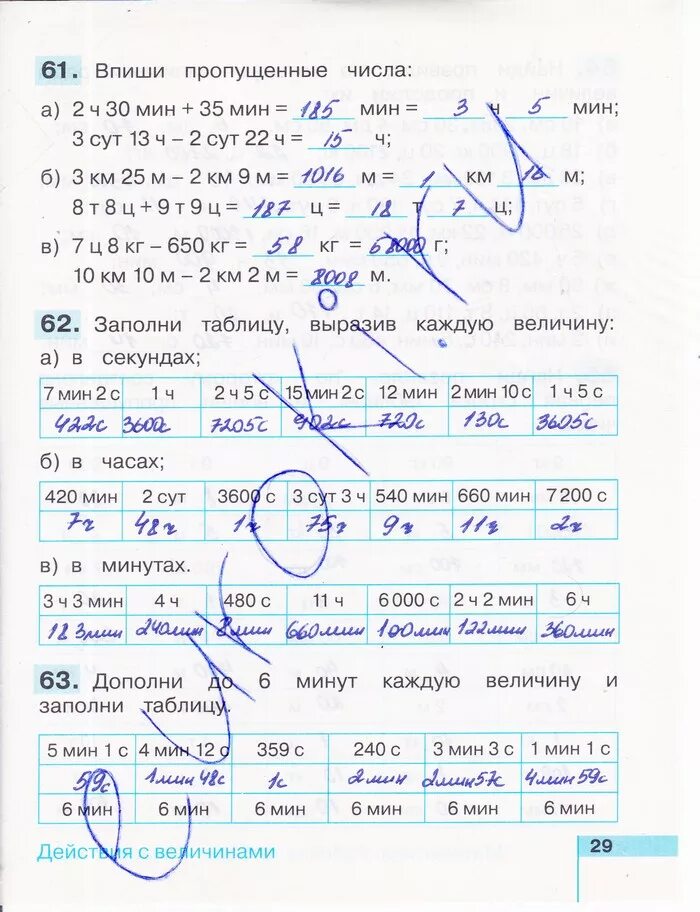 61. Впиши пропущенные числа:
а) 2 ч 30 мин + 35 мин = 185 мин = 3 ч 5 мин;
3 сут 13 ч – 2 сут 22 ч = 15 ч;
б) 3 км 25 м – 2 км 9 м = 1016 м = 1 км 16 м;
8 т 8 ц + 9 т 9 ц = 187 ц = 18 т 7 ц;
в) 7 ц 8 кг – 650 кг = 58 кг = 58000 г;
10 км 10 м – 2 км 2 м = 8008 м.
62. Заполни таблицу, выразив каждую величину:
а) в секундах;
7 мин 2 с 1 ч 2 ч 5 с 15 мин 2 с 12 мин 2 мин 10 с 1 ч 5 с
422с 3600с 7205с 902с 720с 130с 3605с
б) в часах;
420 мин 2 сут 3600 с 3 сут 3 ч 540 мин 660 мин 7 200 с
7ч 48ч 1ч 75ч 9ч 11ч 2ч
в) в минутах.
3 ч 3 мин 4 ч 480 с 11 ч 6 000 с 2 ч 2 мин 6 ч
183мин 240мин 8мин 660мин 100мин 122мин 360мин
63. Дополни до 6 минут каждую величину и
заполни таблицу.
5 мин 1 с 4 мин 12 с 359 с 240 с 3 мин 3 с 1 мин 1 с
59с 1мин 48с 1с 2мин 2мин 57с 4мин 59с
6 мин 6 мин 6 мин 6 мин 6 мин 6 мин
Действия с величинами
29